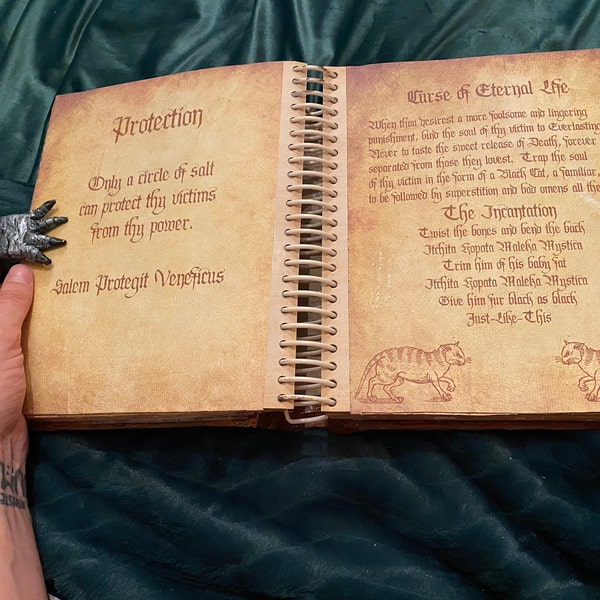 Protection
Only a circle of salt
can protect thy victims
from thy power.
Salem Protegit Veneficus
Curse of Eternal Life
When thou desirest a more foolsome and lingering
punishment, bind the soul of thy victim to Everlasting
Never to taste the sweet release of Death, forever
separated from those they lovest. Trap the soul
of thy victim in the form of a Black Cat, a familiar,
to be followed by superstition and bad omens all the
The Incantation
Twist the bones and bend the back
Itchita Kopata Maleka Mystica
Trim him of his baby fat
Itchita Kopata Maleka Mystica
Give him fur black as black
Just-Like-This